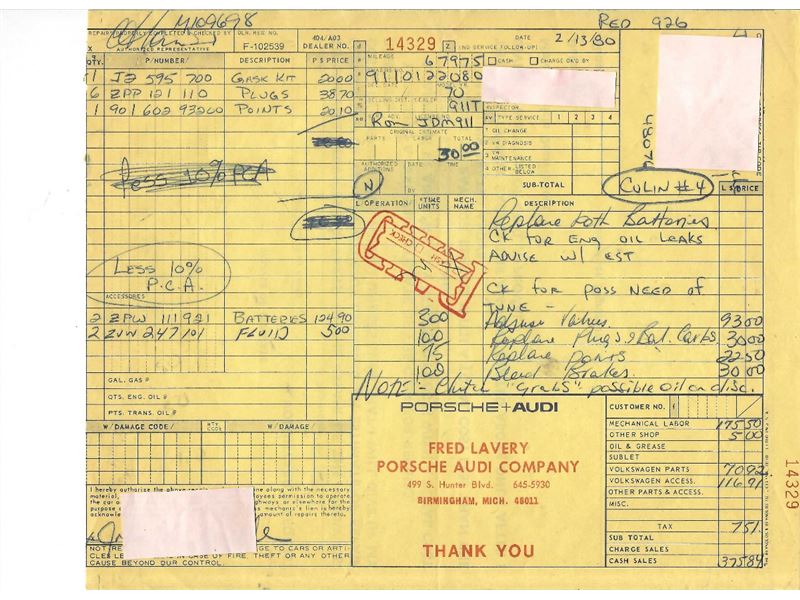 M109698
RED 926
REPAIRS PROPERLY COMPLETED & CHECKED BY
DLR. REG. NO.
AUTHORIZED REPRESENTATIVE
F-102539
404/A03
DEALER NO.
14329
(NO SERVICE FOLLOW-UP)
DATE 2/13/80
QTY. P/NUMBER DESCRIPTION P S PRICE
MILEAGE 67975
CASH
CHARGE OK'D BY
1 JZ 595 700 GASK KIT 2000
9110122080
6 ZPP 121 110 PLUGS 3870
70
1 901 602 93200 POINTS 2010
911T
Ron JDM911
TYPE SERVICE 1 2 3 4
ORIGINAL ESTIMATE
PARTS LABOR TOTAL
30.00
1 OIL CHANGE
2 VW DIAGNOSIS
3 VW MAINTENANCE
4 OTHER LISTED BELOW
Less 10% PCA
AUTHORIZED ADDITIONS
DATE
TIME
N
BY
SUB-TOTAL
COLIN #4
L OPERATION
*TIME UNITS
MECH. NAME
DESCRIPTION
L S PRICE
Replace both Batteries
CK FOR ENG OIL LEAKS
ADVISE W/ EST
LESS 10%
P.C.A.
CK FOR POSS NEED OF
TUNE -
ACCESSORIES
2 ZPW 111921 BATTERIES 12490
300 Adjust Valves. 9300
2 ZVW 247101 FLUID 500
100 Replace Plugs & Bal. Carbs. 3000
75 Replace points 2250
100 Bleed Brakes. 3000
GAL. GAS @
Note - Clutch "Grabs" possible oil on disc.
QTS. ENG. OIL @
PTS. TRANS. OIL @
PORSCHE+AUDI
CUSTOMER NO.
W/DAMAGE CODE/
W/DAMAGE/
MECHANICAL LABOR 17550
OTHER SHOP 500
OIL & GREASE
SUBLET
VOLKSWAGEN PARTS 7092
VOLKSWAGEN ACCESS. 11691
OTHER PARTS & ACCESS.
MISC.
FRED LAVERY
PORSCHE AUDI COMPANY
499 S. Hunter Blvd. 645-5930
BIRMINGHAM, MICH. 48011
14329
I hereby authorize the above
along with the necessary
material,
employees permission to operate
the car
highways or elsewhere for the
purpose
mechanic's lien is hereby
acknowledged
amount of repairs thereto.
TAX 751
SUB TOTAL
CHARGE SALES
CASH SALES 37584
THANK YOU
NOT RE
GE TO CARS OR ARTI-
CLES LE
IN CASE OF FIRE, THEFT OR ANY OTHER
CAUSE BEYOND OUR CONTROL.